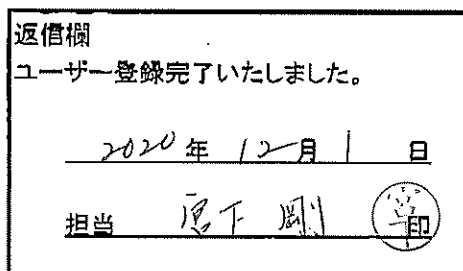 返信欄
ユーザー登録完了いたしました。
2020年 12月 1 日
担当 宮下 剛 印